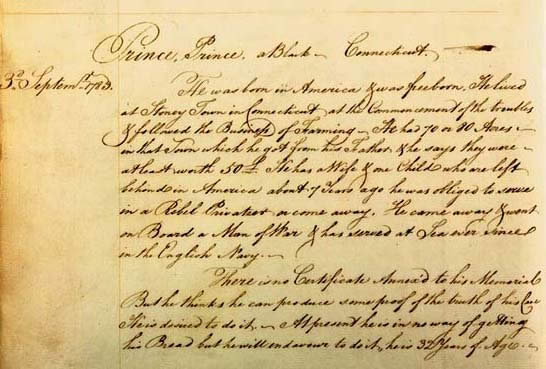 Prince, Prince, a Black – Connecticut.
3d Septemr. 1783.
He was born in America & was freeborn. He lived
at Stoney Town in Connecticut at the Commencement of the troubles
& followed the Business of Farming – He had 70 or 80 Acres –
in that Town which he got from his Father, & he says they were –
at least worth 50£. He has a Wife & one Child who are left
behind in America about 7 Years ago he was obliged to serve
in a Rebel Privateer or come away. He came away & went
on Board a Man of War & has served at Sea ever since
in the English Navy. –
There is no Certificate Annex'd to his Memorial
But he thinks he can produce some proof of the truth of his Case
He is desired to do it. – At present he is in no way of getting
his Bread but he will endeavour to do it, he is 32 Years of Age. –